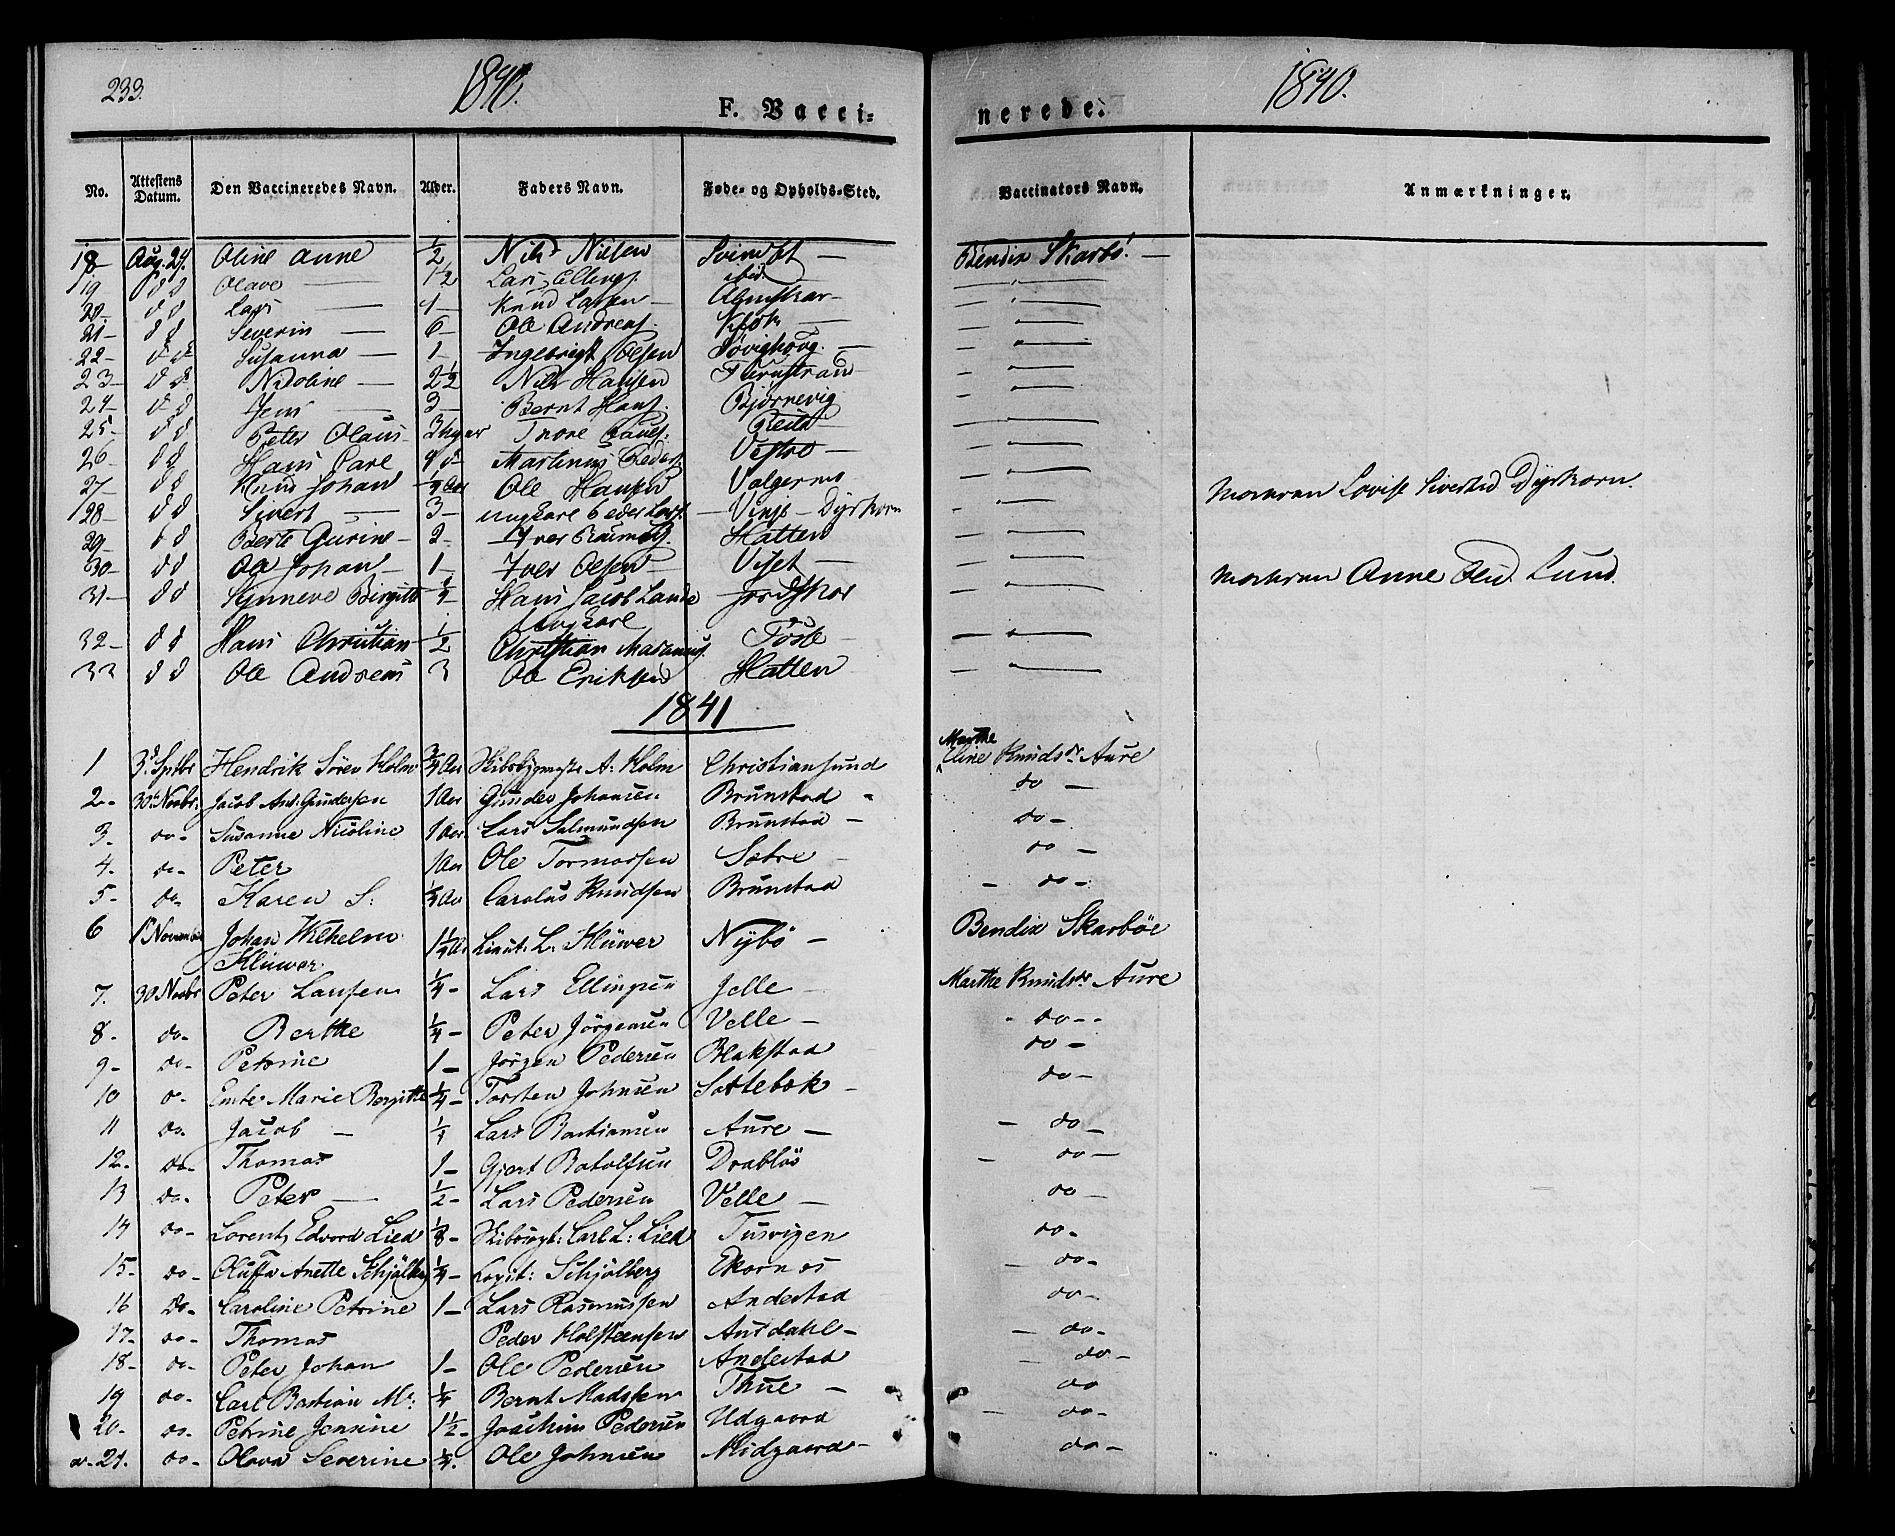 233.
1840.
1840.
F. Vacci-
nerede.
No.
Attestens Datum.
Den Vaccineredes Navn.
Alder.
Faders Navn.
Føde- og Opholds-Sted.
Vaccinators Navn.
Anmærkninger.
18- Aug. 29. Oline Anne 1/2 Nils Nilsen — Bendix Skarbö. —
19 d d Olave — 1 1/2 Lars Ellings. ibid. — " —
20- d d Lars — Knud Larsen — — " —
21- d d Severin — 6- Ole Andreas. Klok — — " —
22- d d Susanna — 1- Ingebrigt Olsen — — " —
23- d d Nicoline — 2 1/2 Nils Hansen — " —
24- d d Jens — 3- Bernt Hans. Bjørnevig — " —
25- d d Peter Olaus- Reite — " —
26- d d Hans Carl Martinus Peders. Vestre — — " —
27- d d Knud Johan Ole Hansen — " — Morkran Lovise Sivertsd Dyrkorn.
28- d d Sivert — 3- ungkarl Peder Lars. — Vinje - Dyrkorn — " —
29- d d Berte Gurine- 2- Iver Hatten — " —
30- d d Ole Johan — 1- Iver Olsen — Viset- — " — Morkran Anne Olsd. Lund.
31- d d Synneve Birgitte Hans Jacob Lande — " —
32- d d Hans Christian 1/2 Ungkarl Christian Tøsse — — " —
33 d d Ole Andreas 3 Ole Eriksen Hatten — " —
1841
1 3d Sptbr Hendrik Sören Holm 3/4 Aar Skibsbygmester A: Holm Christiansund Marthe Eline Knudsdr Aure
2- 30te Novbr: Jacob And: Gundersen 1 Aar Gunder Johansen Brunstad - do —
3- do- Susanne Nicoline 1 Aar Lars Salmundsen Brunstad — do -
4- do- Peter 1 Aar Ole Tormodsen Sætre — do —
5- do- Karen S: 1/4 Aar Carolus Knudsen Brunstad — do -
6 1 November Johan Wilhelm Klüwer 1 1/4 Aar Lieut: L: Klüwer Nybö — Bendix Skarböe
7. 30 Novbr Peter Larsen 1/4 - Lars Ellingsen Jelle — Marthe Knudsdr Aure
8- do- Berthe 1/4 - Peter Jörgensen Velle — - do - -
9- do- Petrine 1 - Jörgen Pedersen Blakstad do -
10 do- Marie Bergitte 1/4 - Torsten Johnsen — do —
11 do- Jacob — Lars Bastiansen Aure — — do -
12- do- Thomas 1 - Gjert Batolfsen Drabløs — do —
13 do- Peter — 1/2 - Lars Pedersen Velle — do —
14 do- Lorents Edvard Lied 1/8 - Carl L: Lied Tusvigen do -
15- do- Oluffa Anette Schjölberg 1/4 - Schjölberg Ekornæs — do -
16 do- Caroline Petrine 1 - Lars Rasmussen Andestad do -
17- do- Thomas Peder Holsteensen Aursdahl- — do -
18- do- Peter Johan 1 - Ole Pedersen Andestad — do -
19 do- Carl Bastian M: 1/4 Bernt Madssen Thue — do
20- do- Petrine Jensine 1 1/2 - Joachim Pedersen Udgaard — do -
21. do- Olava Severine 1/4. Ole Johnsen Midgaard- do -